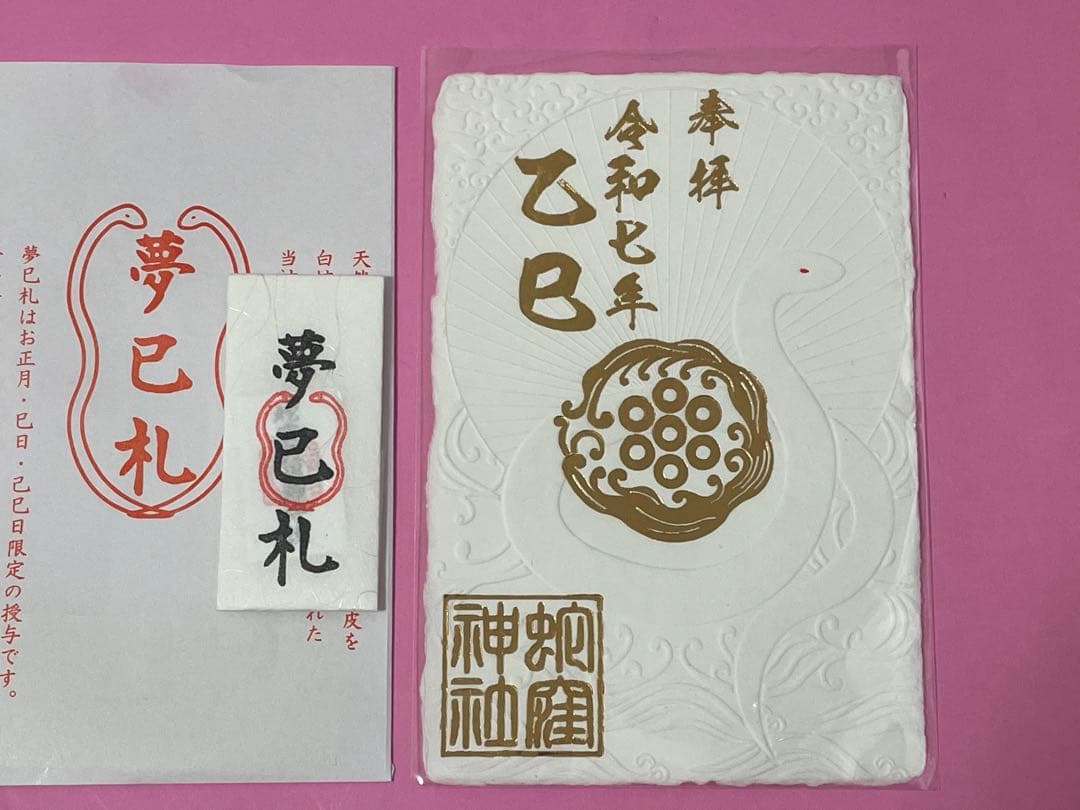 奉拝
令和七年
乙巳
蛇窪
神社
夢巳札
夢巳札
当
白
天
皮を
れた
夢巳札はお正月・巳日・己巳日限定の授与です。